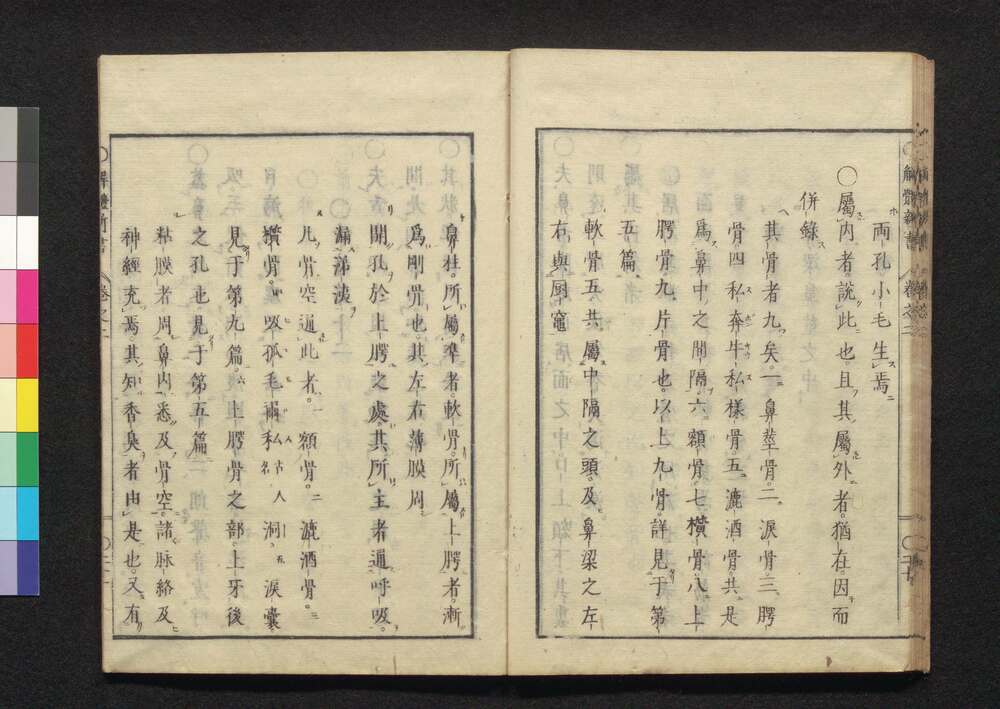 兩孔小毛生焉
○屬内者說此也且其屬外者猶在因而
併錄
其骨者九矣一鼻莖骨二淚骨三腭
骨四私奔牛私樣骨五漉酒骨共是
爲鼻中之間隔六額骨七橫骨八上
腭骨九片骨也以上九骨詳見于第
五篇
軟骨五共屬中隔之頭及鼻梁之左
右與厨竈
鼻柱所屬準者軟骨所屬上腭者漸
爲剛骨也其左右薄膜周
開孔於上腭之處其所主者通呼吸
漏涕洟
凡骨空通此者一額骨二漉酒骨三
橫骨四吸孤毛爾私古人名洞五淚囊
見于第九篇六上腭骨之部上牙後
之孔也見于第五篇
粘膜者周鼻内悉及骨空諸脉絡及
神經充焉其知香臭者由是也又有
解體新書 卷之二